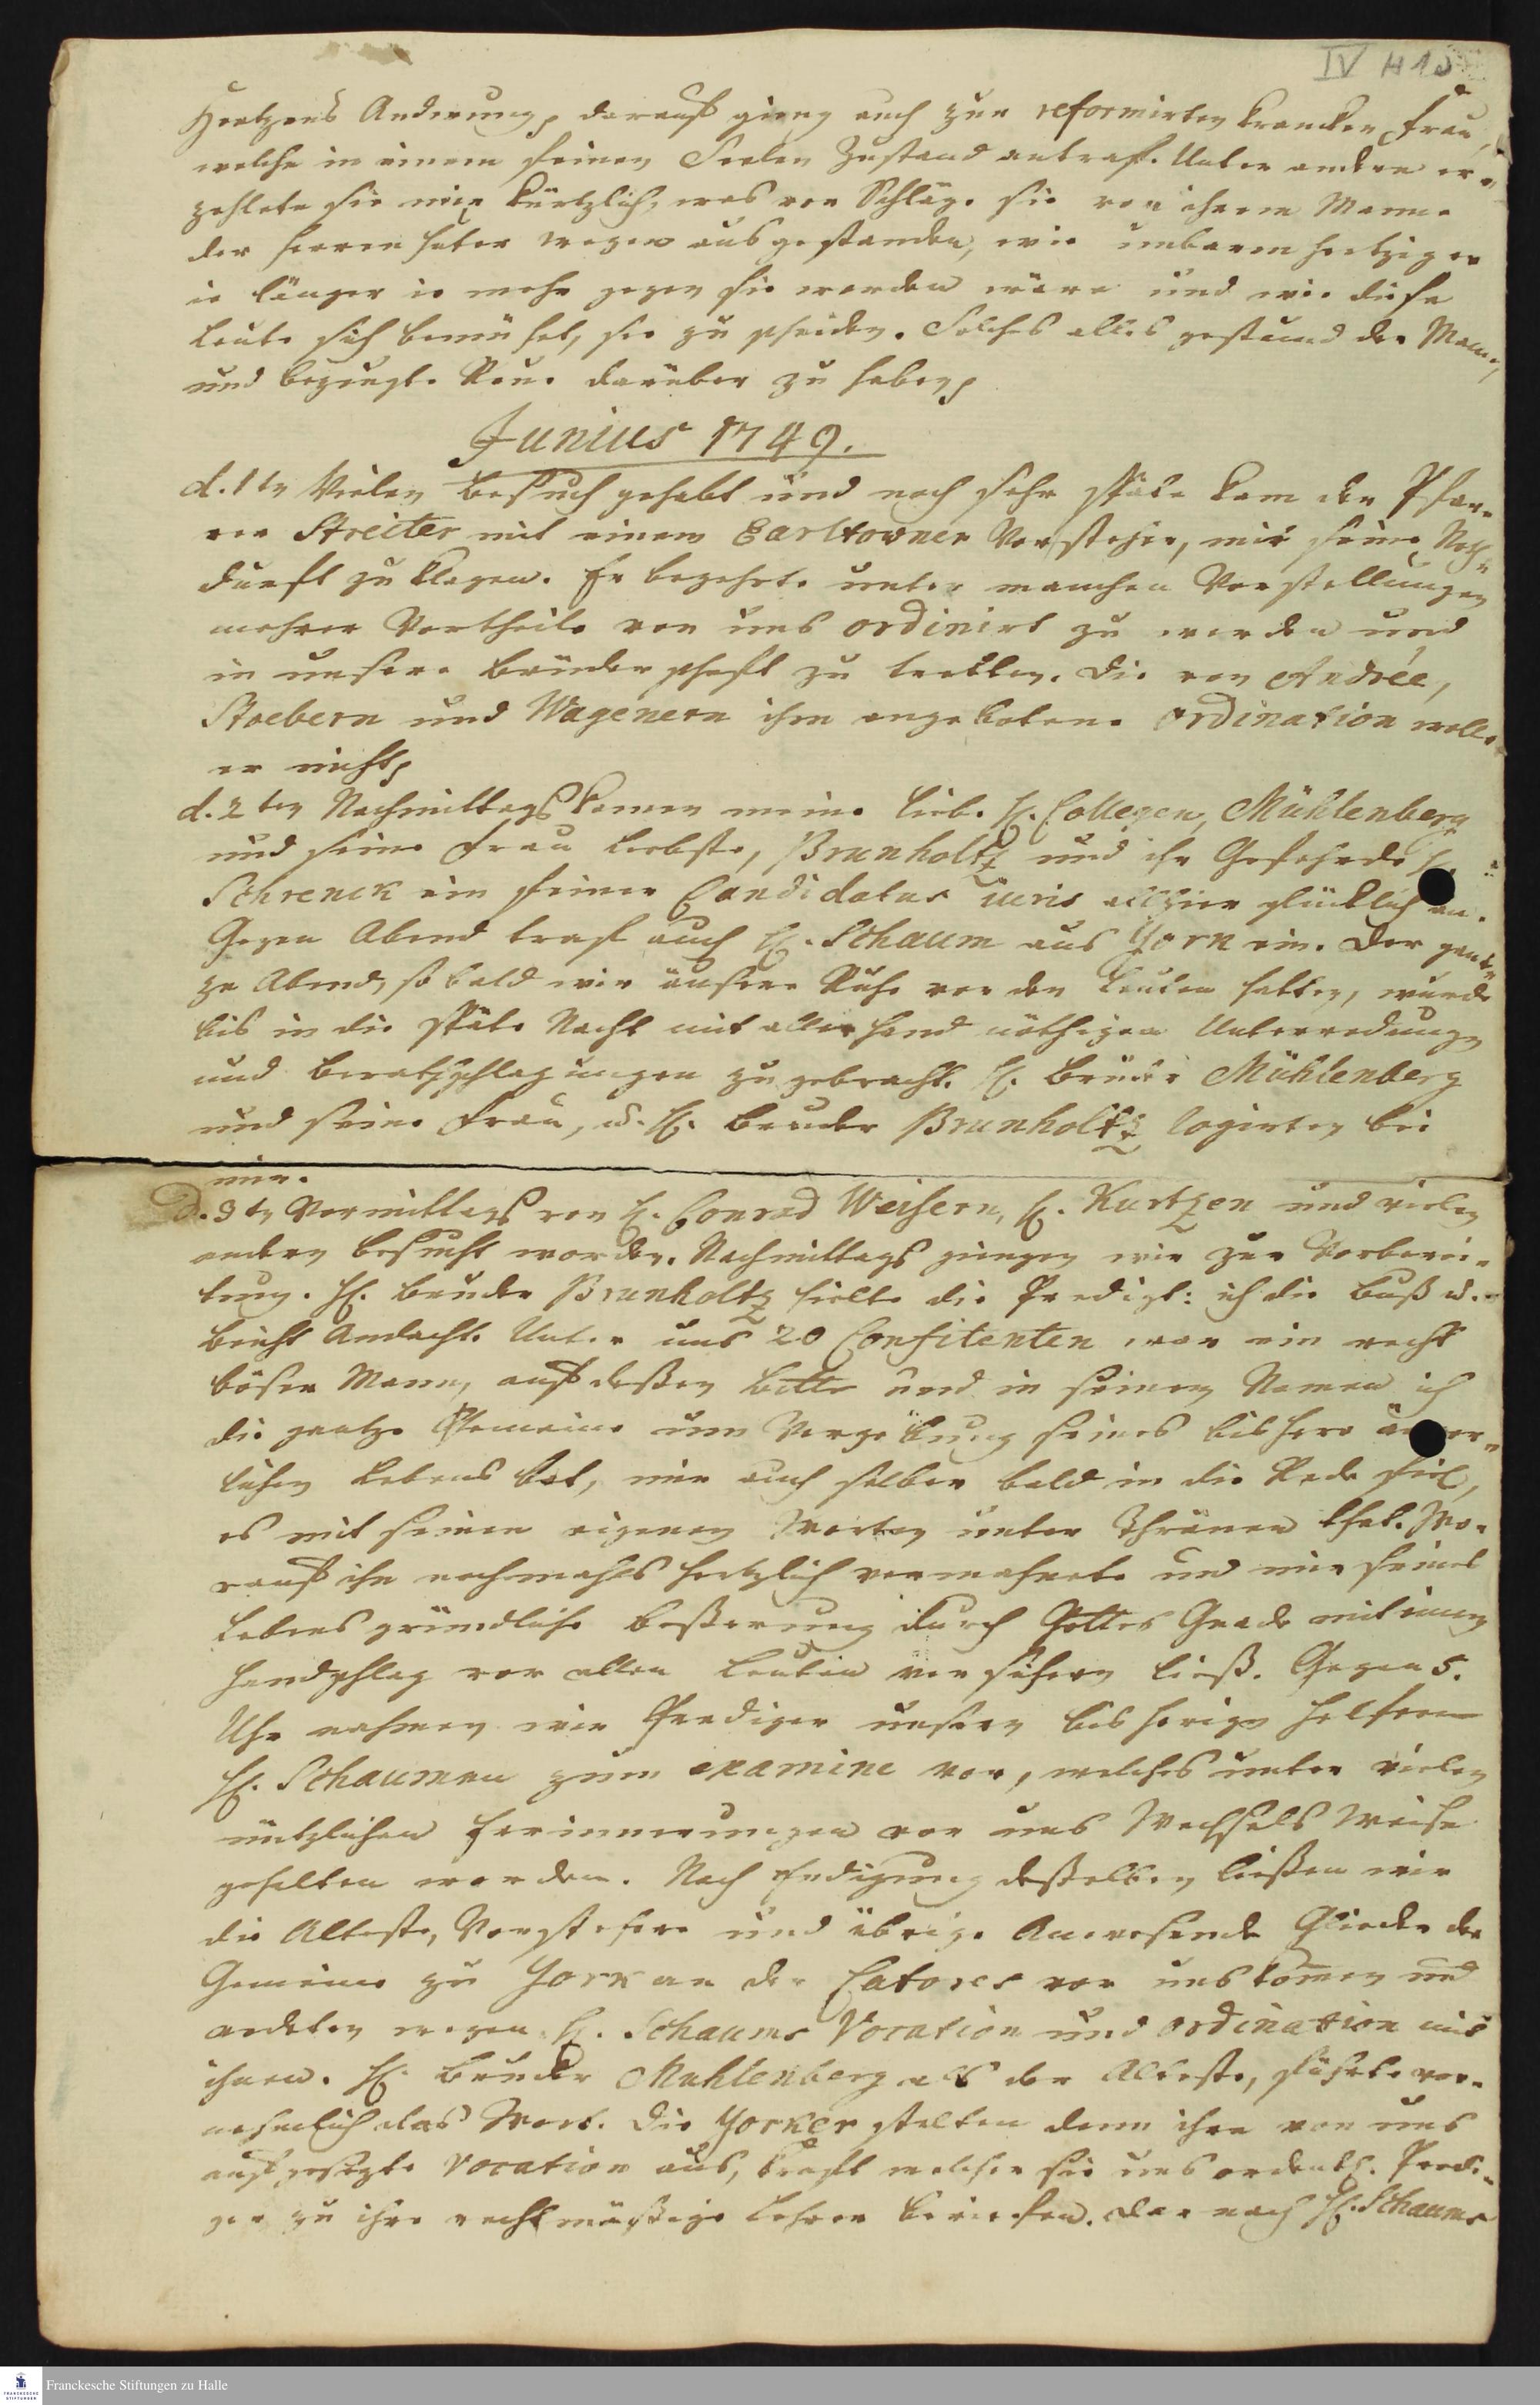 IV H 10
Hertzens Anderung, darauf gieng auch zur reformirten krancken Frau,
welche in einem feinen Seelen Zustand antraf. Unter andern er-
zehlete sie mir kürtzlich, was vor Schläge sie von ihrem Manne
der Herrenhuter wegen ausgestanden, wie unbarmhertziger
ie länger ie mehr gegen sie worden wäre und wie diese
Leute sich bemühet, sie zu scheiden. Solches alles gestund der Mann,
und bezeugte Reue darüber zu haben,
Junius 1749.
d. 1 tn Vielen Besuch gehabt und noch sehr späte kam der Pfar-
rer Streiter mit einem Earltowner Vorsteher, mir seine Noth-
durft zu klagen. Er begehrte unter manchen Vorstellungen
mehrer Vortheile von uns ordinirt zu werden und
in unsere Brüderschaft zu tretten. Die von Andrée,
Stoebern und Wagenern ihm angebotene Ordination wolle
er nicht,
d. 2 ten Nachmittags kamen meine liebe H. Collegen, Mühlenberg
und seine Frau Liebste, Brunholtz und ihr Gefehrde H.
Schrenck ein feiner Candidatus iuris allhier glücklich an.
Gegen Abend traf auch H. Schaum aus York ein. Der gant-
ze Abend, so bald wir unsere Ruhe vor den Leuten hatten, wurde
bis in die späte Nacht mit allerhand nöthigen Unterredungen
und Berathschlagungen zugebracht. H. Bruder Mühlenberg
und seine Frau, u. H. Bruder Brunholtz logirten bei
mir.
D. 3 tn Vormittags von H. Conrad Weisern, H. Kurtzen und vielen
andern besucht worden. Nachmittags giengen wir zur Vorberei-
tung. H. Bruder Brunholtz hielte die Predigt: ich die Buß u.
Beicht Andacht. Unter uns 20 Confitenten war ein recht
böser Mann, auf deßen Bitte und in seinem Namen ich
die gantze Gemeine um Vergebung seines bishero ärger-
lichen Lebens bat, mir auch selber bald in die Rede fiel,
es mit seinen eigenen Worten unter Thränen that. Wo-
rauf ihn nochmahls hertzlich vermahnete und mir seines
Lebens gründliche Beßerung durch Gottes Gnade mit einem
Handschlag vor allen Leuten versichern ließ. Gegen 5.
Uhr nahmen wir Prediger unsern bisherigen Helfern
H. Schaumen zum examine vor, welches unter vielen
nützlichen Erinnerungen von uns Wechsels Weise
gehalten worden. Nach Endigung deßelben ließen wir
die Alteste, Vorstehere und übrige Anwesende Glieder der
Gemeine zu York an der Catores vor uns komen und
redeten wegen H. Schaums Vocation und Ordination mit
ihnen. H. Bruder Muhlenberg als der Alteste, führte vor-
nehmlich das Wort. Die Yorker stelten denn ihre von uns
aufgesezte Vocation aus, kraft welcher sie uns ordentl. Predi-
ger zu ihre rechtmäßige Lehrer berieffen. Dar nach H. Schaums
Franckesche Stiftungen zu Halle